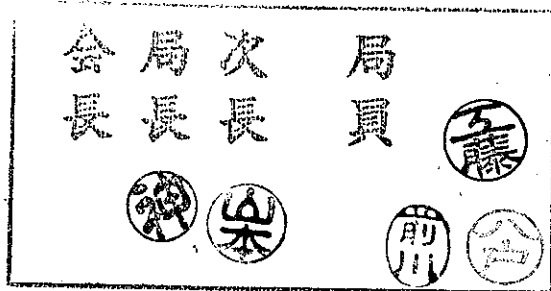 会長
局長
次長
局員
工藤
山本
前川